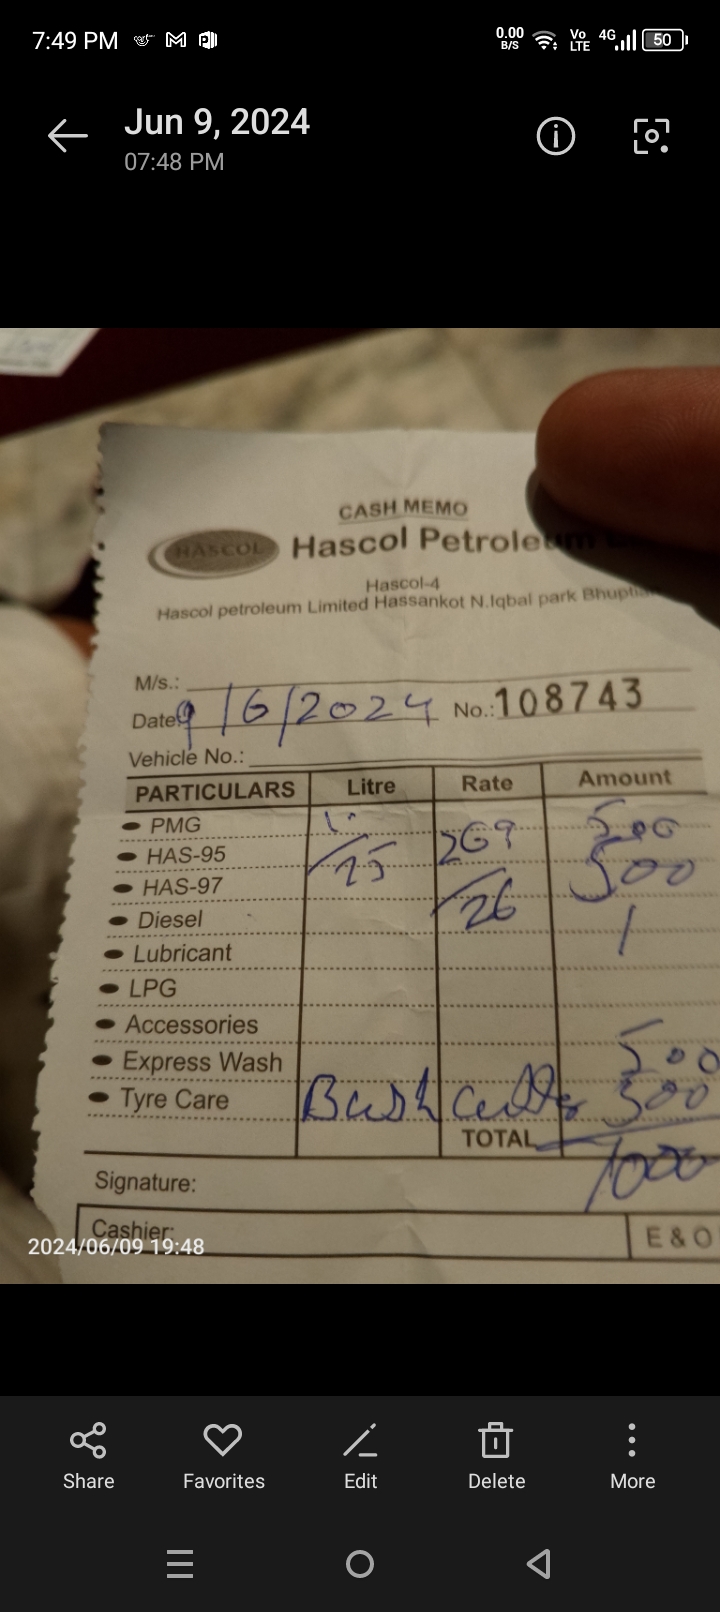 7:49 PM
0.00 B/S Vo LTE 4G 50
Jun 9, 2024
07:48 PM
CASH MEMO
HASCOL Hascol Petroleum
Hascol-4
Hascol petroleum Limited Hassankot N.Iqbal park
M/s.:
Date: 9/6/2024 No.: 108743
Vehicle No.:
PARTICULARS Litre Rate Amount
PMG 269 500
HAS-95 /25 500
HAS-97 /26
Diesel
Lubricant
LPG
Accessories
Express Wash 500
Tyre Care Bush 500
TOTAL 1000
Signature:
Cashier: E & O
2024/06/09 19:48
Share Favorites Edit Delete More